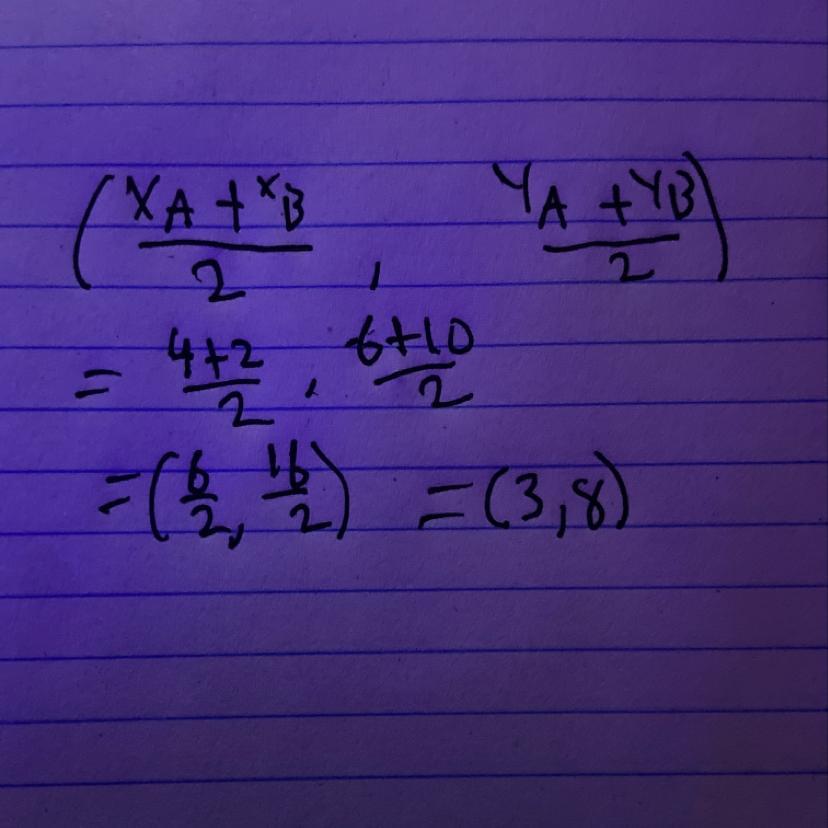 (XA + XB / 2 , YA + YB / 2)
= 4+2 / 2 , 6+10 / 2
= (6/2, 16/2) = (3,8)